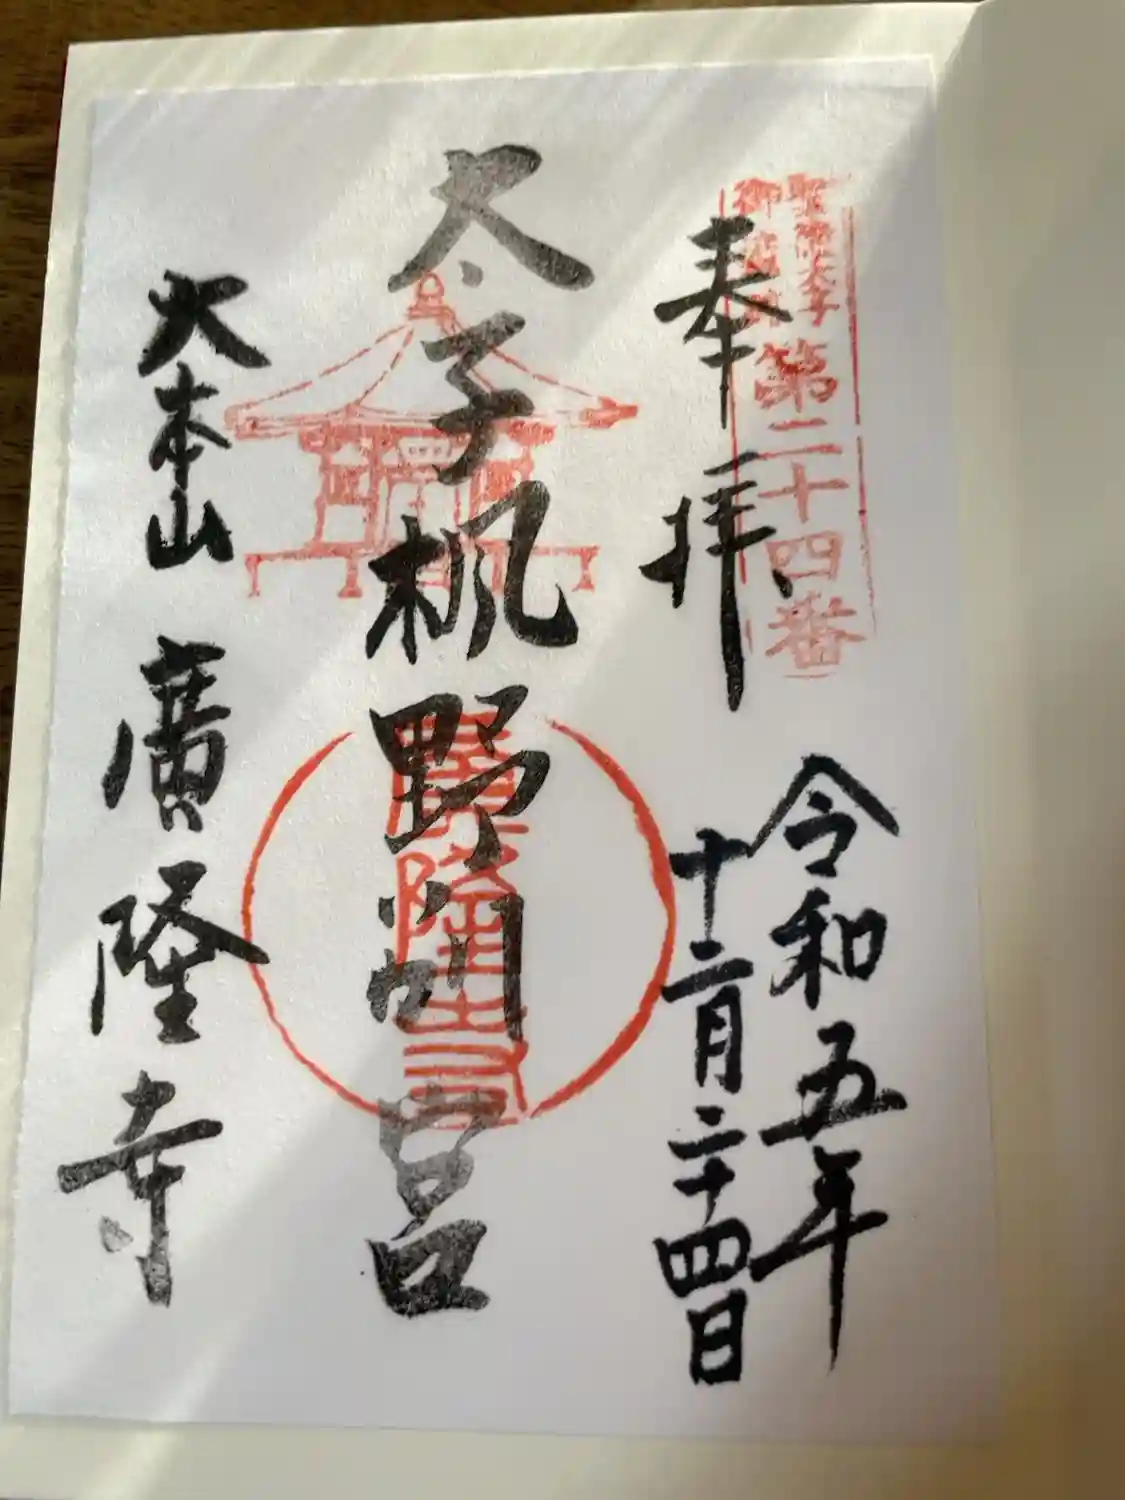 聖徳太子
御遺跡
第二十四番
奉拝
令和五年
十二月二十四日
太子楓野別宮
廣隆寺
大本山 廣隆寺